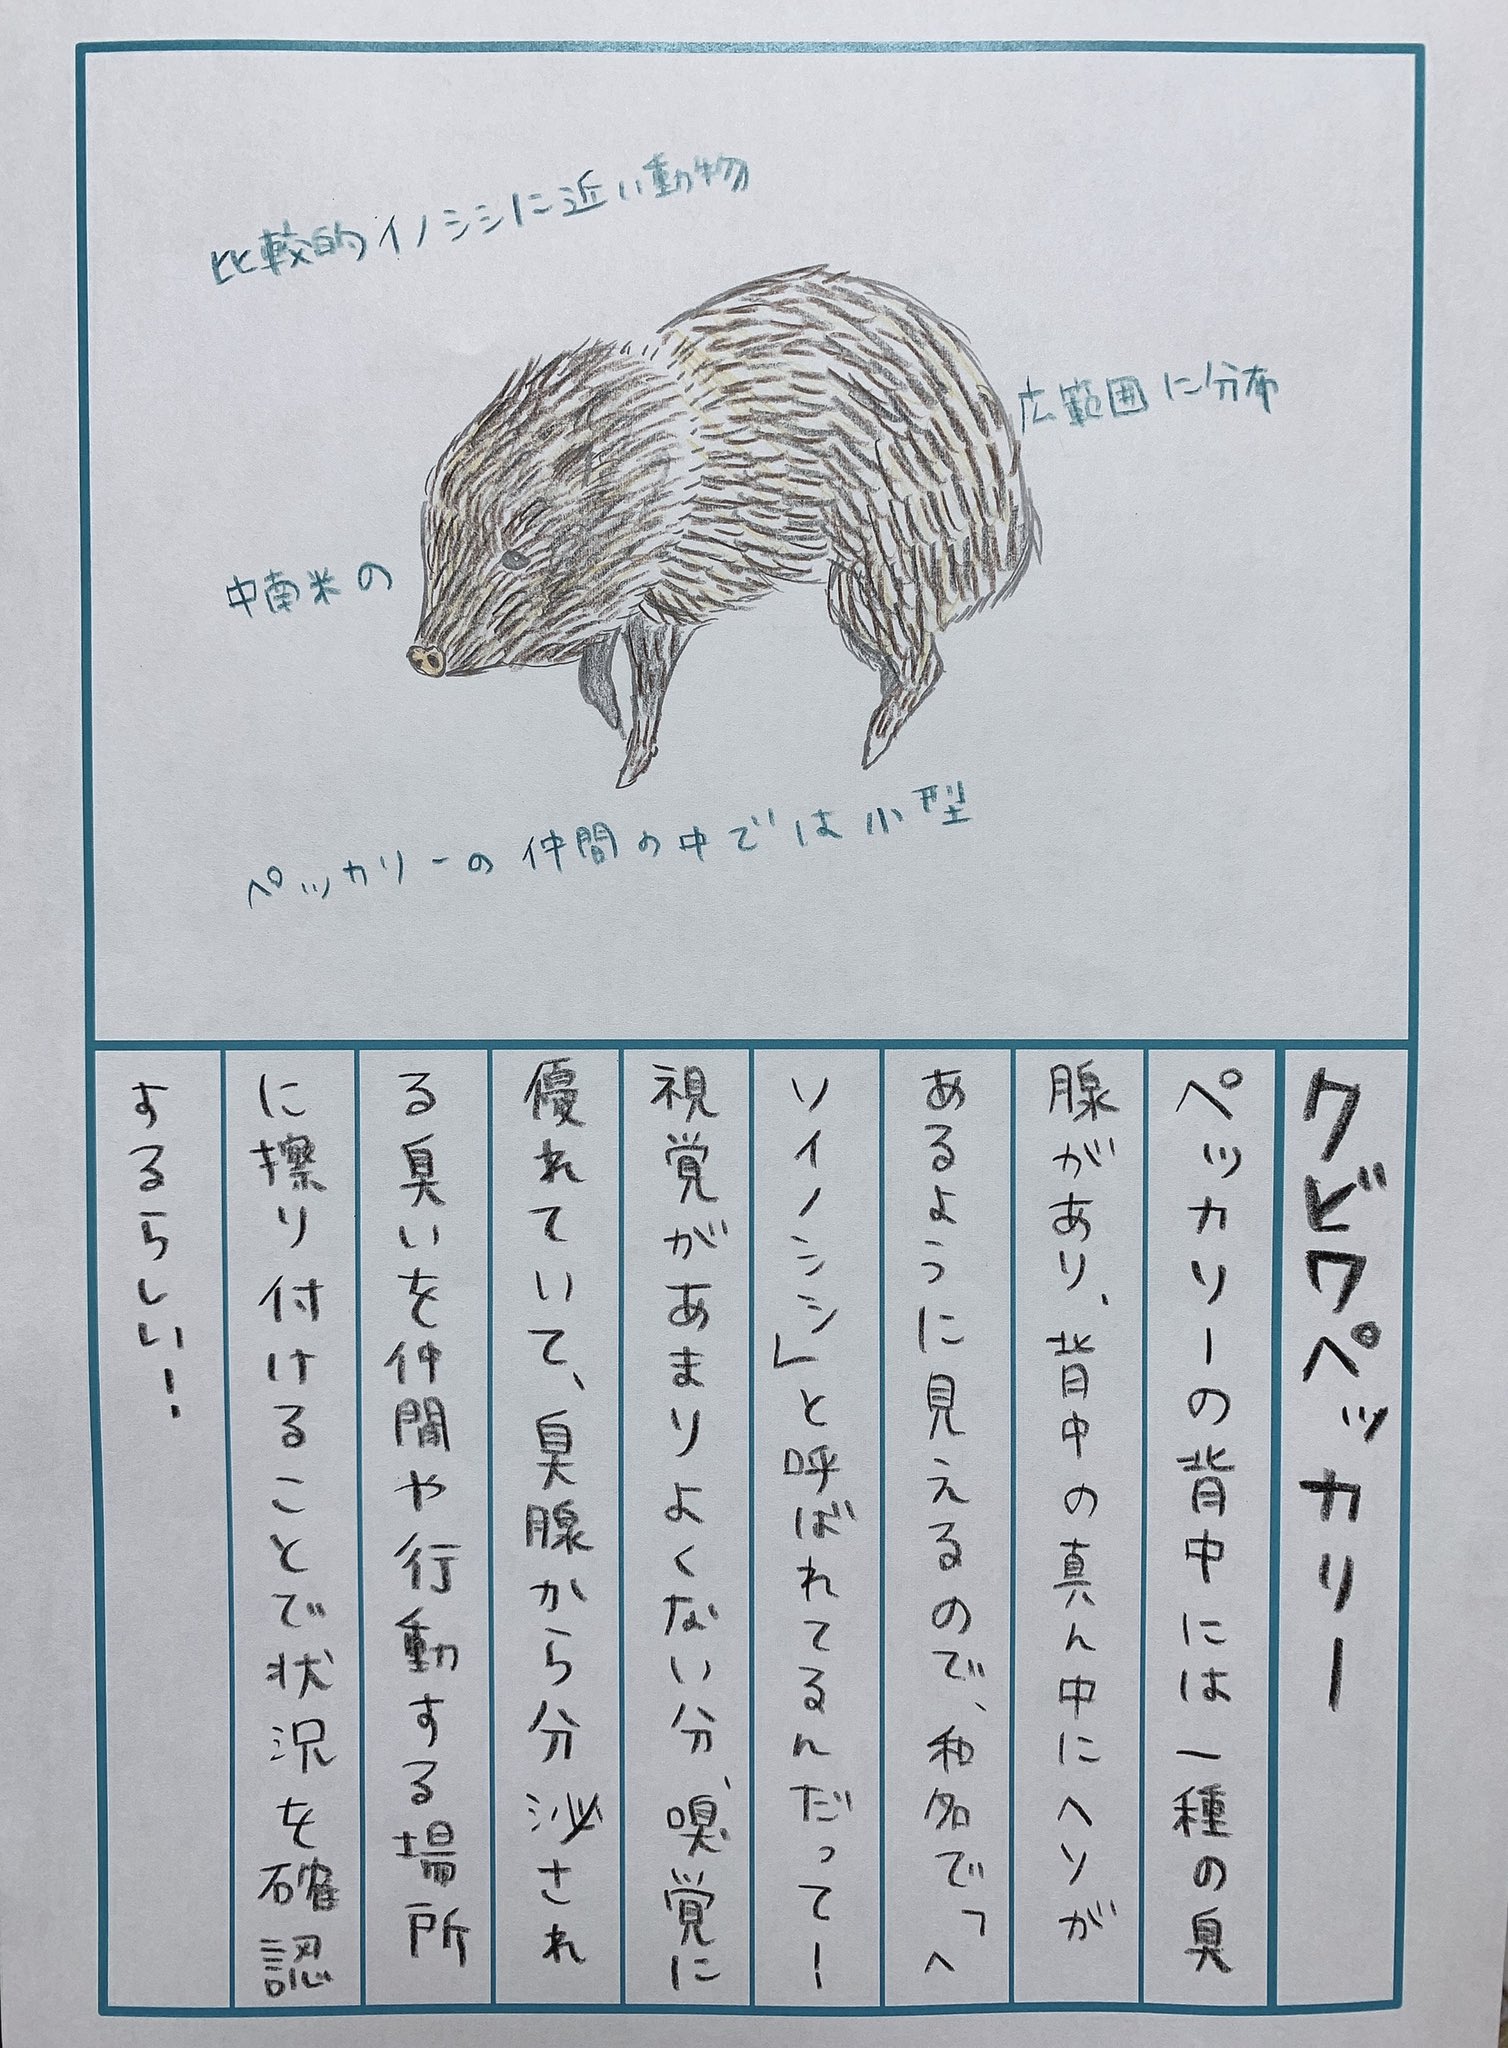 比較的イノシシに近い動物
中南米の
広範囲に分布
ペッカリーの仲間の中では小型
クビワペッカリー
ペッカリーの背中には一種の臭
腺があり、背中の真ん中にヘソが
あるように見えるので、和名で「ヘ
ソイノシシ」と呼ばれてるんだって！
視覚があまりよくない分、嗅覚に
優れていて、臭腺から分泌され
る臭いを仲間や行動する場所
に擦り付けることで状況を確認
するらしい！